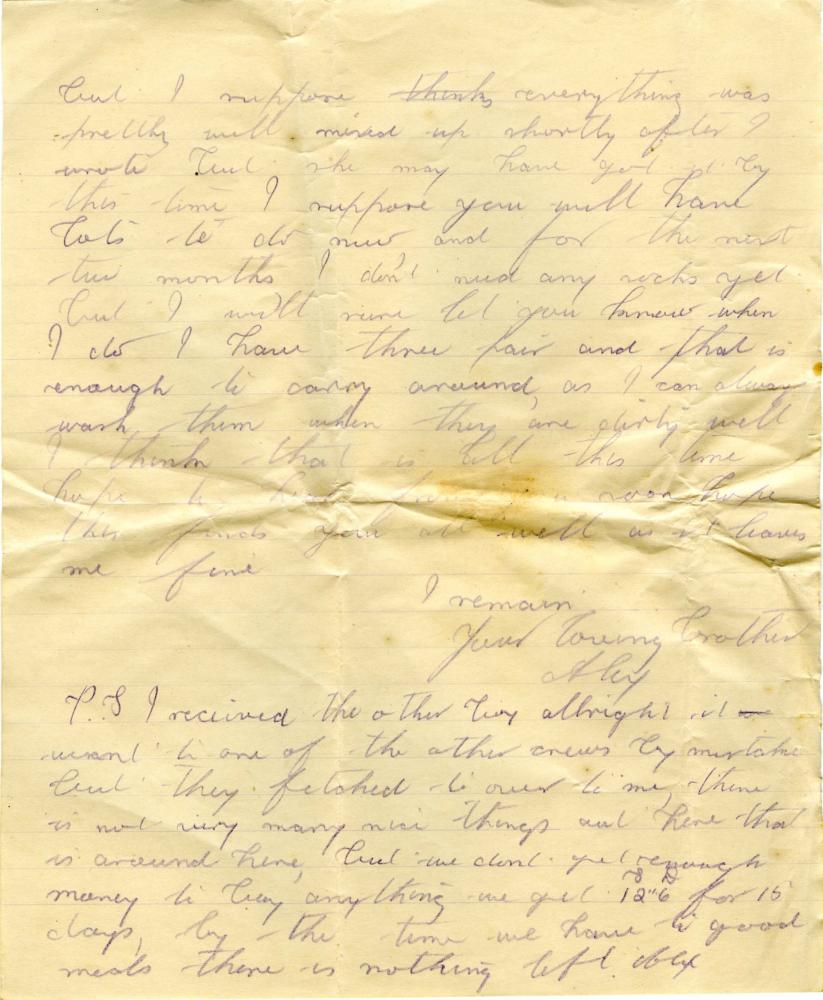 but I suppose think everything was
pretty well mixed up shortly after I
wrote but she may have got it by
this time I suppose you will have
lots to do now and for the next
two months I don't need any socks yet
but I will sure let you know when
I do I have three pair and that is
enough to carry around, as I can always
wash them when they are dirty well
I think that is all this time
hope to hear from you soon hope
this finds you all well as it leaves
me fine
I remain
Your loving brother
Alex
P.S I received the other box allright it
went to one of the other crews by mistake
but they fetched to over to me, there
is not very many nice things out here that
is around here, but we dont get enough
S D
money to buy anything we get 12"6 for 15
days, by the time we have a good
meals there is nothing left. Alex